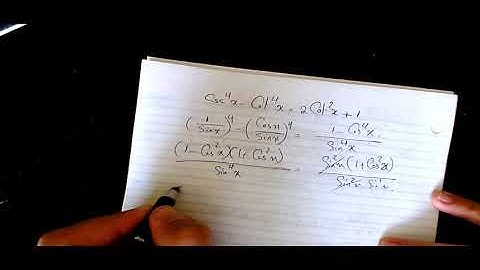 Csc⁴x - Cot⁴x = 2Cot²x + 1
(1/Sinx)⁴ - (Cosx/Sinx)⁴ = (1 - Cos⁴x)/Sin⁴x
(1 - Cos²x)(1 + Cos²x)/Sin⁴x = Sin²x(1 + Cos²x)/Sin²x Sin²x